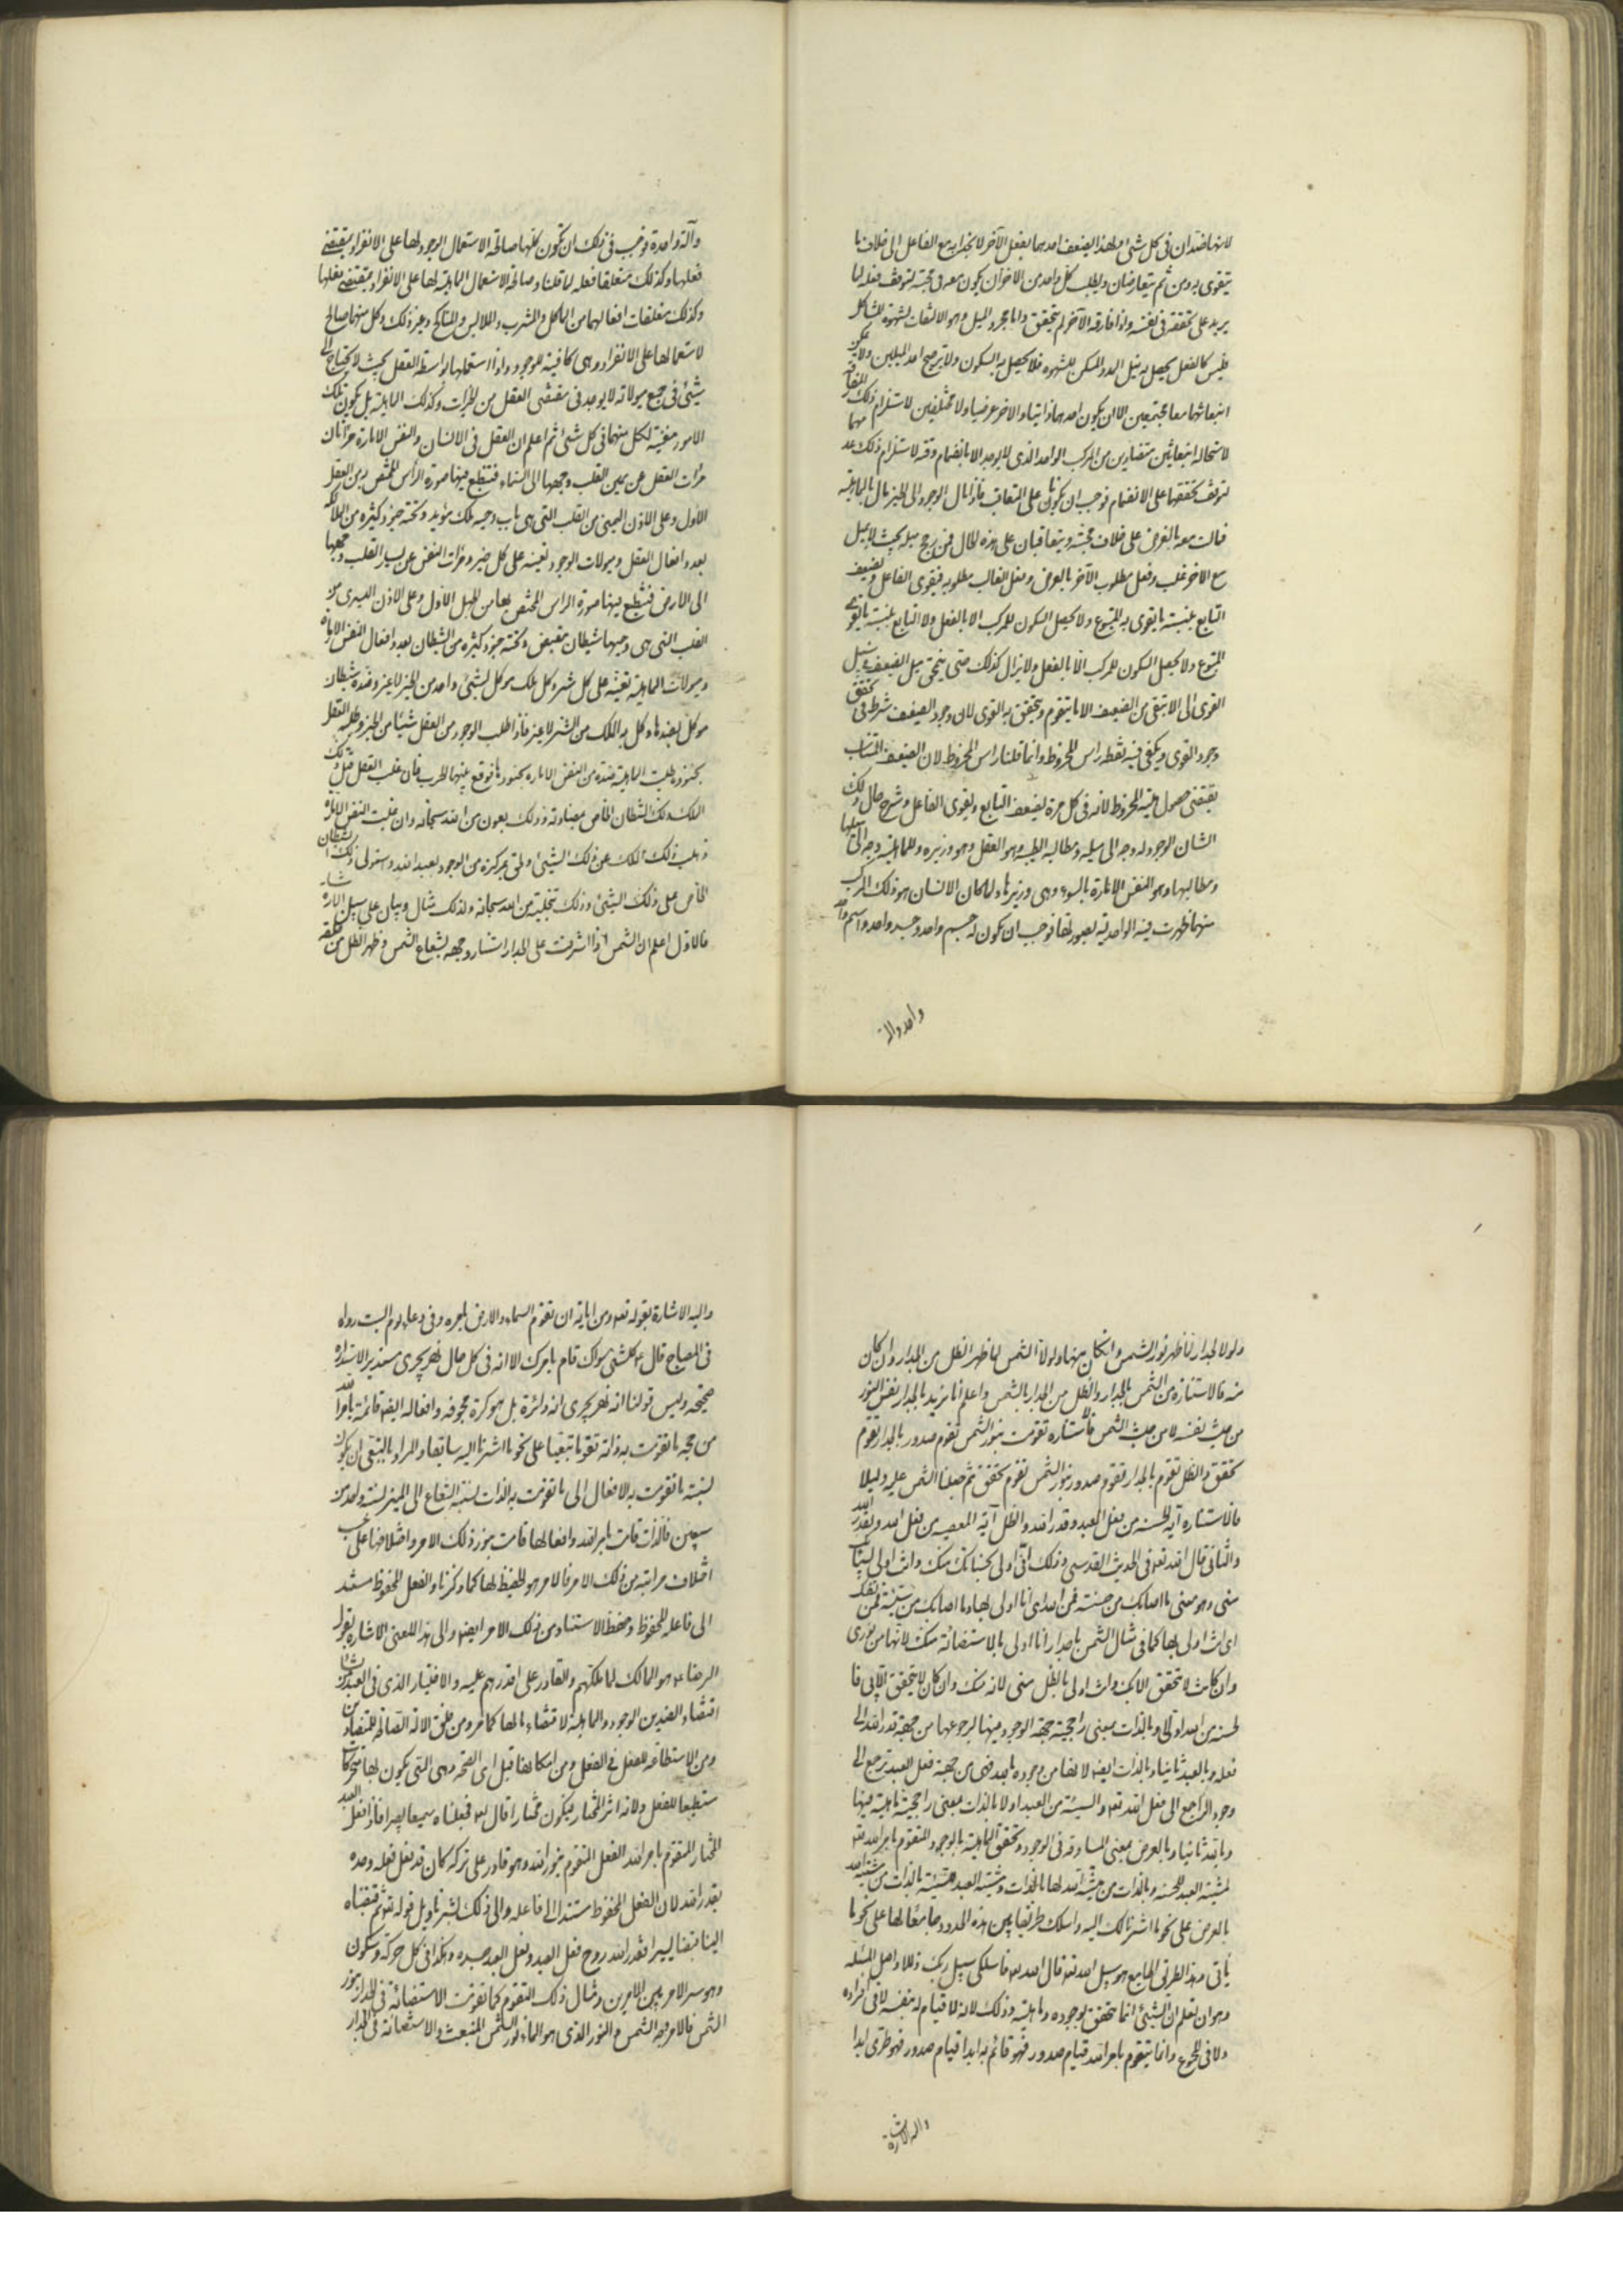 لانهما ضدان فى كل شئ ولهذا يضعف احدهما بفعل الآخر لانجذابه مع الفاعل الى خلاف ما
يتقوى به ومن ثم يتعارضان ويطلب كل واحد من الآخر ان يكون معه فى محبته لتوقف فعله لما
يريد على تحققه فى نفسه واذا فارقه الآخر لم يتحقق واما مجرد الميل وهو الالتفات لشهوة المشاكل
فليس كالفعل يحصل به نيل المدد المسكن للشهوة فلا يحصل به السكون ولا يترجح احد الميلين ولا يمكن
انبعاثهما معا مجتمعين الا ان يكون احدهما ذاتيا والآخر عرضيا ولا مختلفين لاستلزام ذلك
لاستحالة انبعاثين متضادين من المركب الواحد الذى لا يوجد الا بانضمام
لتوقف تحققهما على الانضمام فوجب ان يكونا على التعاقب فاذا مال الوجود الى الخير مال بالماهية
فمالت معه بالعرض على خلاف محبته ويتعاقبان على هذه الحال فمن رجح ميله بحيث لا يميل
مع الآخر غلب وفعل مطلوب الآخر بالعرض وفعل الغالب مطلوبه فيقوى الفاعل ويضعف
التابع بنسبة ما يقوى به المتبوع ولا يحصل السكون للمركب الا بالفعل ولا التابع بنسبة ما يقوى
المتبوع ولا يحصل السكون للمركب الا بالفعل ولا يزال كذلك حتى ينمحى ميل الضعيف فى ميل
القوى الى الا يبقى من الضعيف الا ما يتقوم ويتحقق به القوى لان وجود الضعيف شرط فى تحقق
وجود القوى ويكفى فيه نقطة راس المخروط وانما قلنا راس المخروط لان الضعيف
يقتضى حصول هيئة المخروط لانه فى كل مرة يضعف التابع ويقوى الفاعل وشرح حال ذلك
الشان الوجود له وجه الى ميله ومطالبه الطيبة وهو العقل وهو وزيره وللماهية وجه الى ميلها
ومطالبها وهو النفس الامارة بالسوء وهى وزيرها ولما كان الانسان هو ذلك المركب
منهما ظهرت فيه الواحدية بصورتها فوجب ان يكون له جسم واحد وجسد واحد واسم واحد
واحد وآلة
وآلة واحدة فوجب فى ذلك ان تكون كلها صالحة لاستعمال الوجود لها على الانفراد بمقتضى
فعلها وكذلك متعلقا فعله لما قلنا وصالحة لاستعمال الماهية لها على الانفراد بمقتضى فعلها
وكذلك متعلقات افعالهما من المأكل والمشرب والملابس والمناكح وغير ذلك وكل منهما صالح
لاستعمالها على الانفراد وهى كافية للوجود واذا استعملها بواسطة العقل بحيث لا يحتاج الى
شئ فى جميع ميولاته لا يوجد فى مقتضى العقل من الخيرات وكذلك الماهية بل تكون تلك
الامور مغنية لكل منهما فى كل شئ ثم اعلم ان العقل فى الانسان والنفس الامارة مرآتان
مرآت العقل عن يمين القلب وجهها الى السماء فتنطبع فيها صورة الرأس المختص به من العقل
الاول وعلى الاذن اليمنى من القلب التى هى باب وجهه ملك مؤيد وتحته جنود كثيرة من الملائكة
بعدد افعال العقل وميولات الوجود تعينه على كل خير ومرآت النفس عن يسار القلب وجهها
الى الارض فتنطبع فيها صورة الراس المختص بها من الجهل الاول وعلى الاذن اليسرى من
القلب التى هى وجهها شيطان مقيض وتحته جنود كثيرة من الشيطان بعدد افعال النفس الامارة
وميولات الماهية تعينه على كل شر وكل ملك موكل بشئ واحد من الخير لا غير وضده شيطان
موكل بضد ما وكل به الملك من الشر لا غير فاذا طلب الوجود من العقل شيئا من الخير وطلبه العقل
بجنوده طلبت الماهية ضده من النفس الامارة بجنودها فوقع بينهما الحرب فان غلب العقل قتل ذلك
الملك ذلك الشيطان الخاص بمضادته وذلك بعون من الله سبحانه وان غلبت النفس الامارة
ذهب ذلك الملك عن ذلك الشئ ولحق بمركزه من الوجود يعبد الله واستولى ذلك الشيطان
الخاص على ذلك الشئ وذلك بتخلية من الله سبحانه ولذلك مثال وبيان على سبيل الاشارة
فالاول اعلم ان الشمس اذا اشرقت على الجدار استنار وجهه بشعاع الشمس وظهر الظل من خلفه
ولولا الجدار لما ظهر نور الشمس وان كان منها ولولا الشمس لما ظهر الظل من الجدار وان كان
منه فالاستنارة من الشمس بالجدار والظل من الجدار بالشمس واعلم انا نريد بالجدار نفس النور
من حيث نفسه لا من حيث الشمس فالاستنارة تقومت بنور الشمس تقوم صدور بالجدار تقوم
تحقق والظل تقوم بالجدار تقوم صدور بنور الشمس تقوم تحقق ثم جعلنا الشمس عليه دليلا
فالاستنارة آية الحسنة من فعل العبد وقدر الله والظل آية المعصية من فعل العبد وبقدر الله
والثانى قال الله تعه فى الحديث القدسى وذلك انى اولى بحسناتك منك وانت اولى بسيئاتك
منى وهو معنى ما اصابك من حسنة فمن الله اى انا اولى بها وما اصابك من سيئة فمن نفسك
اى انت اولى بها كما فى مثال الشمس يا جدار انا اولى بالاستضائة منك لانها من نورى
وان كانت لا تتحقق الا بك وانت اولى بالظل منى لانه منك وان كان لا يتحقق الا بى فا
لحسنة من الله اولا وبالذات بمعنى راجحية جهة الوجود فيها لرجوعها من جهة قدر الله الى
فعله وبالعبد ثانيا وبالذات ايضا لانها من وجوده بالله فهى من جهة فعل العبد ترجع الى
وجوده الراجع الى فعل الله تعه والسيئة من العبد اولا بالذات بمعنى راجحية ماهيته فيها
وبالله ثانيا وبالعرض بمعنى المساوقة فى الوجود وتحقق الماهية بالوجود المتقوم بامر الله تعه
لمشية العبد للحسنة وبالذات من مشية الله لها بالذات ومشية العبد للسيئة بالذات من مشية الله
بالعرض على نحو ما اشرنا لك اليه واسلك طريقا بين هذه الحدود جامعا لها على نحو ما
يأتى وهذا الطريق الجامع هو سبيل الله تعه قال الله تعه فاسلكى سبل ربك ذللا واصل المسئلة
وهو ان تعلم ان الشئ انما يتحقق بوجوده وماهيته وذلك لانه لا قيام له بنفسه لا فى افراده
ولا فى المجموع وانما يتقوم بامر الله قيام صدور فهو قائم به ابدا قيام صدور فهو طرى ابدا
واليه الاشارة
واليه الاشارة بقوله تعه ومن اياته ان تقوم السماء والارض بامره وفى دعاء يوم السبت رواه
فى المصباح قال ع كل شئ سواك قام بامرك الا انه فى كل حال نهر يجرى مستدير الاستدارة
صحيحة وليس قولنا انه نهر يجرى انه دائرة بل هو كرة مجوفة وافعاله ايضا قائمة بامر الله
من جهة ما تقومت به ذاته تقوما تبعيا على نحو ما اشرنا اليه سابقا والمراد بالتبعى ان يكون
نسبة ما تقومت به الافعال الى ما تقومت به الذات نسبة الشعاع الى المنير نسبة واحد من
سبعين فالذات قامت بامر الله وافعالها قامت بنور ذلك الامر واختلافها على حسب
اختلاف مراتبه من ذلك الامر فالامر هو الحفيظ لها كما ذكرنا والفعل المحفوظ مستند
الى فاعله المحفوظ وحفظ الاستناد من ذلك الامر ايضا والى هذا المعنى الاشارة بقول
الرضا ع هو المالك لما ملكهم والقادر على ما اقدرهم عليه والاختيار الذى فى العبد نشا من
اقتضاء الضدين الوجود والماهية لاقتضاء ما لهما كما مر ومن خلق الآلة الصالحة للمتضادين
ومن الاستطاعة للفعل فى الفعل ومن امكانها قبل اى الصحة وهى التى يكون بها متحركا
مستطيعا للفعل ولانه اثر المختار فيكون مختارا قال تعه فجعلناه سميعا بصيرا فاذا فعل العبد
المختار المتقوم بامر الله الفعل المتقوم بنور الله وهو قادر على تركه كان قد فعل فعله وحده
بقدر الله لان الفعل المحفوظ مستند الى فاعله والى ذلك اشير تاويل قوله تعه ثم قبضناه
الينا قبضا يسيرا فقدر الله روح فعل العبد وفعل العبد جسده وهكذا فى كل حركة وسكون
وهو سر الامر بين الامرين ومثال ذلك التقوم كما تقومت الاستضائة فى الجدار بنور
الشمس فالامر وجه الشمس والنور الذى هو الماء نور الشمس المنبعث والاستضائة فى الجدار